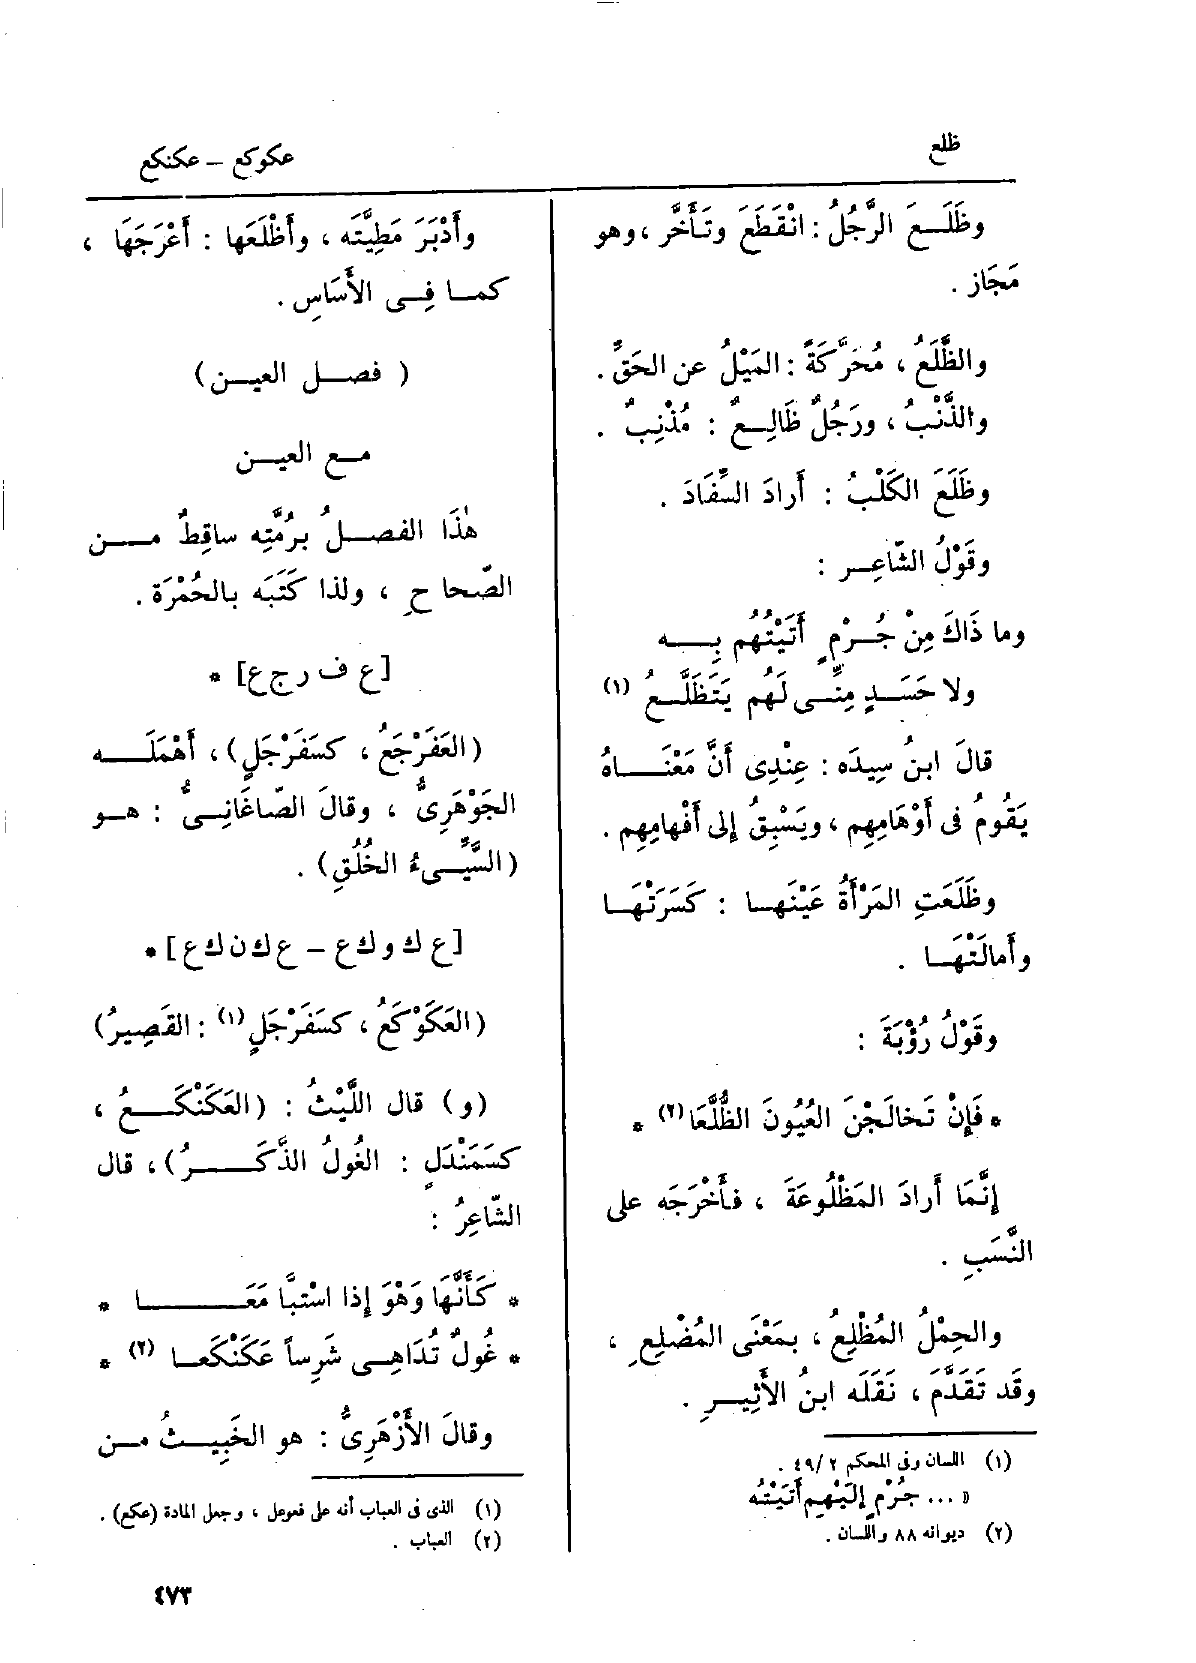 ظلع
عكوكع – عكنكع
وظَلَـعَ الرَّجُلُ : انْقَطَعَ وتَـأَخَّر ، وهو
مَجَاز .
والظَّلَعُ ، مُحَرَّكَةً : المَيْلُ عن الحَقِّ .
والذَّنْبُ ، ورَجُلٌ ظَالِـعٌ : مُذْنِبٌ .
وظَلَعَ الكَلْبُ : أَرادَ السِّفَادَ .
وقَوْلُ الشّاعِـر :
وما ذَاكَ مِنْ جُـرْمٍ أَتَيْتُهُم بِـه
ولا حَسَـدٍ مِنِّـى لَهُم يَتَظَلَّـعُ (١)
قالَ ابنُ سِيدَه : عِنْدِى أَنَّ مَعْنَـاهُ
يَقُومُ فى أَوْهَامِهِم ، ويَسْبِقُ إلى أَفْهامِهِم .
وظَلَعَتِ المَرْأَةُ عَيْنَهـا : كَسَرَتْهَـا
وأَمالَتْهَـا .
وقَوْلُ رُؤْبَةَ :
* فَإِنْ تَخالَجْنَ العُيُونَ الظُّلَّعَا (٢) *
إِنَّمَا أَرادَ المَظْلُوعَةَ ، فأَخْرَجَه على
النَّسَبِ .
والحِمْلُ المُظْلِعُ ، بمَعْنَى المُضْلِعِ ،
وقَد تَقَدَّمَ ، نَقَلَه ابنُ الأَثِيـرِ .
(١) اللسان وفى المحكم ٢ /٤٩ .
« ... جُرْمٍ إِلَيْهِم أَتَيْتُه
(٢) ديوانه ٨٨ واللسان .
وأَدْبَرَ مَطِيَّتَه ، وأَظْلَعَها : أَعْرَجَهَا ،
كمـا فِـى الأَسَاسِ .
( فصـل العيـن )
مـع العيـن
هٰذَا الفصـلُ بِرُمَّتِه ساقِطٌ مـن
الصّحاحِ ، ولذا كَتَبَه بالحُمْرَة .
[ع ف ر ج ع] *
(العَفَرْجَعُ ، كسَفَرْجَلٍ) ، أَهْمَلَـه
الجَوْهَرِىُّ ، وقالَ الصّاغَانِـىُّ : هـو
(السَّيِّـىءُ الخُلُقِ) .
[ع ك و ك ع – ع ك ن ك ع] *
(العَكَوْكَعُ ، كسَفَرْجَلٍ (١) : القَصِيرُ)
(و) قال اللَّيْثُ : (العَكَنْكَـعُ ،
كسَمَنْدَلٍ : الغُولُ الذَّكَـرُ) ، قال
الشّاعِرُ :
* كَأَنَّهَا وَهْوَ إِذا اسْتبَّا مَعَـا *
* غُولٌ تُدَاهِـى شَرِساً عَكَنْكَعـا (٢) *
وقالَ الأَزْهَرِىُّ : هو الخَبِيـثُ مـن
(١) الذى فى العباب أنه على فعوعل ، وجعل المادة (عكع) .
(٢) العباب .
٤٧٣